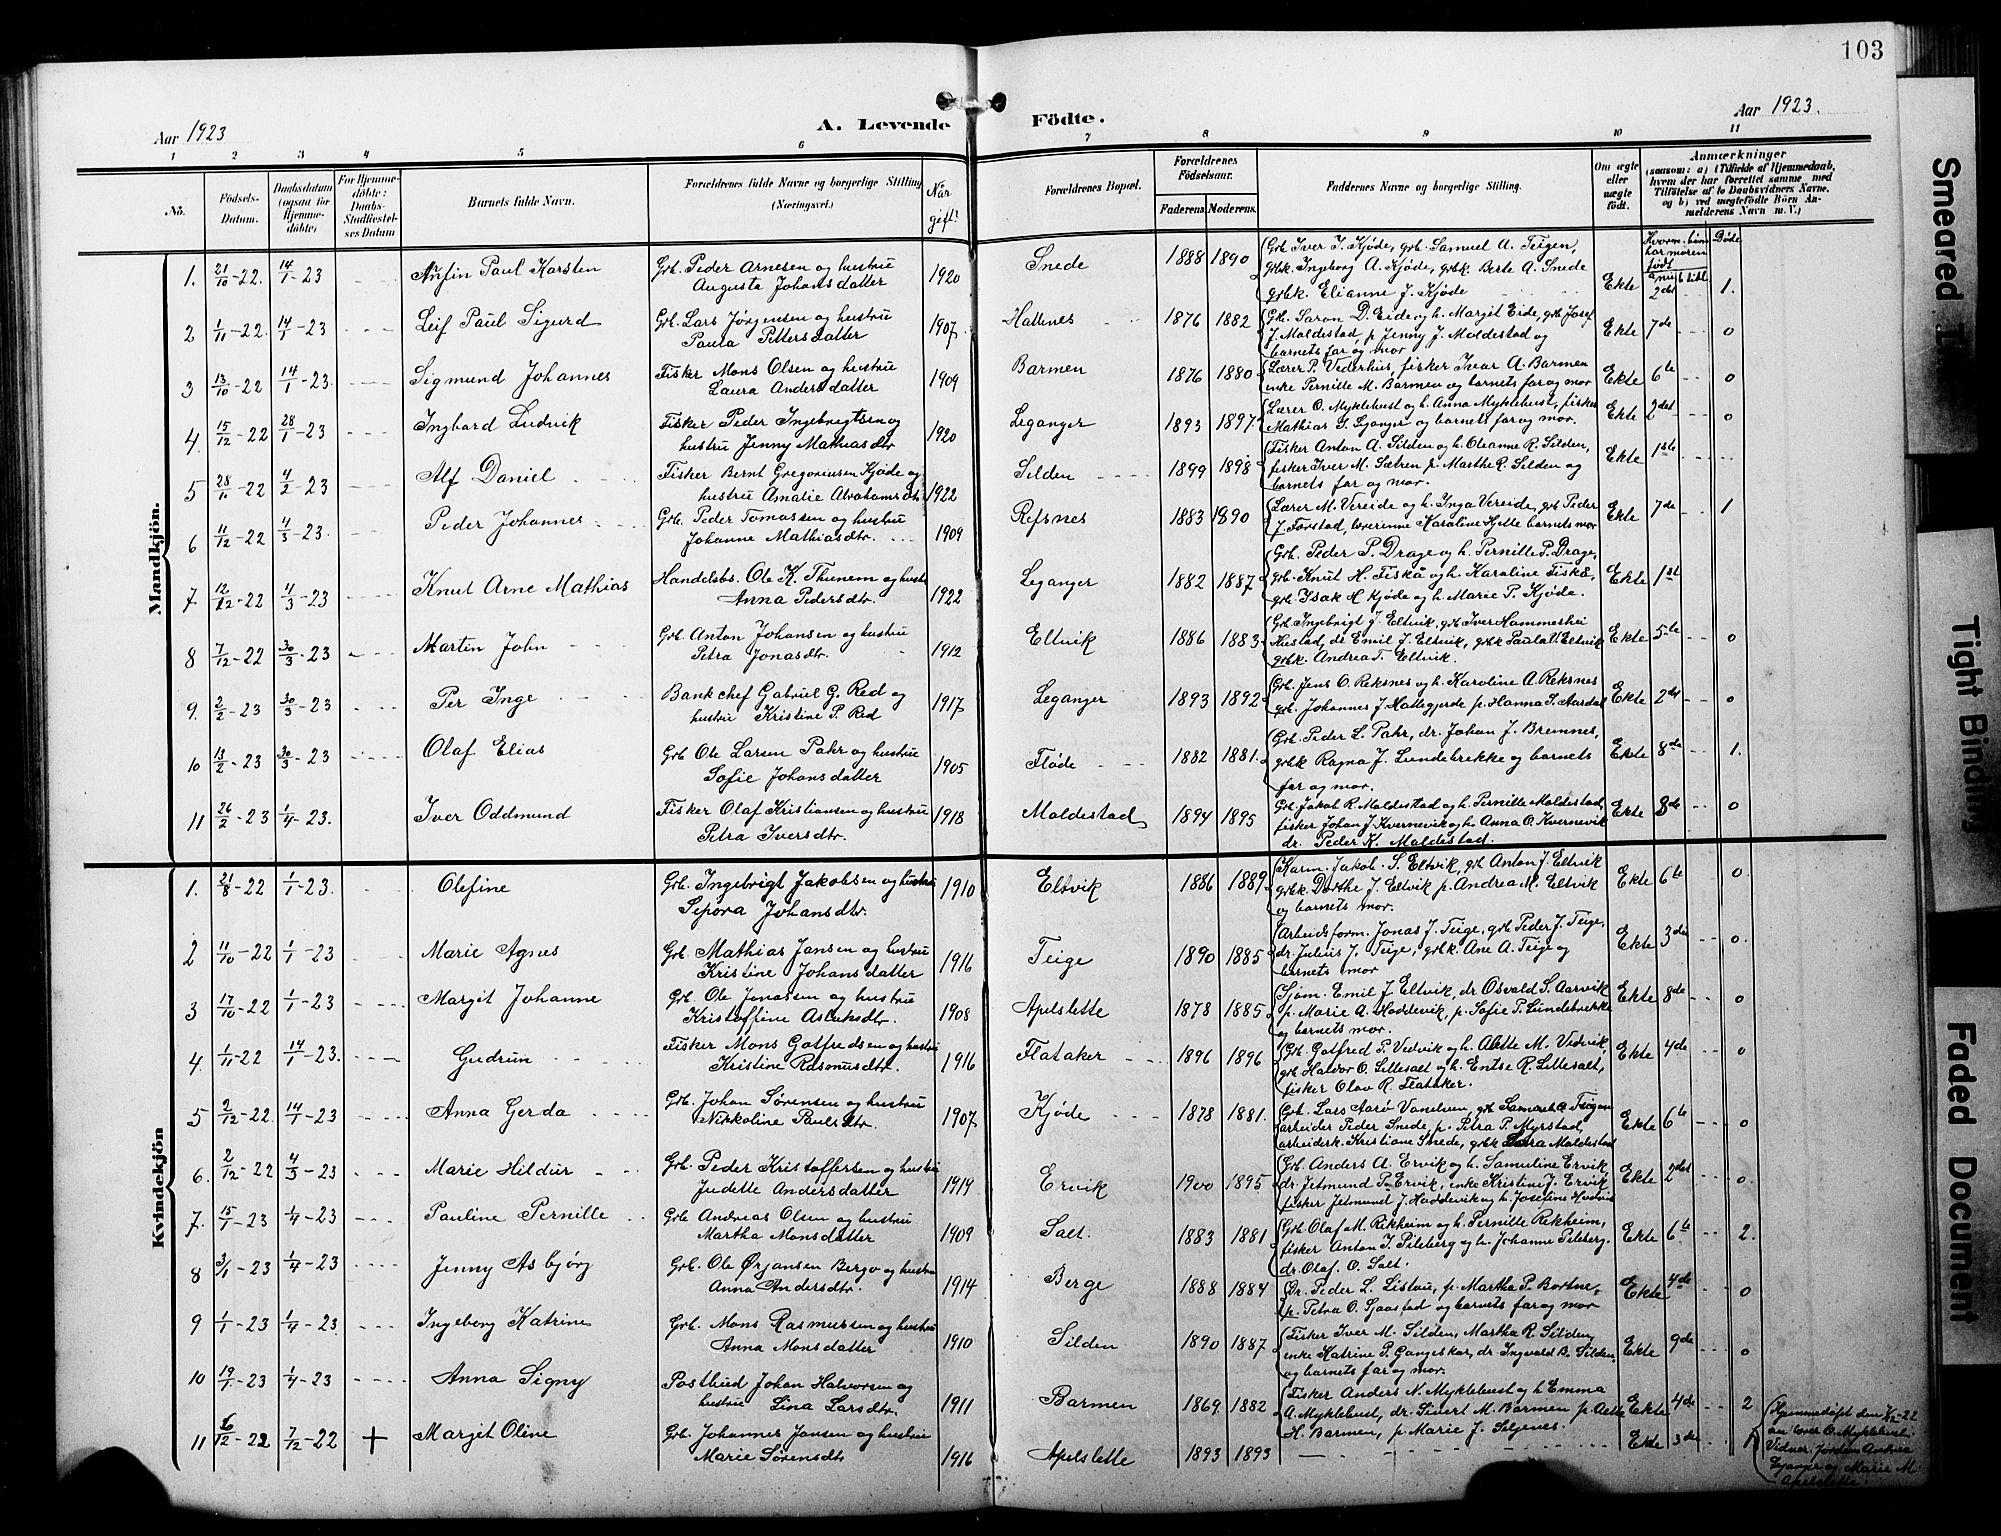 103
Aar 1923
A. Levende Födte.
Aar 1923.
1 2 3 4 5 6 7 8 9 10 11
No.
Födsels-Datum.
Daabsdatum (ogsaa for Hjemmedöbte)
For Hjemmedöbte: Daabs-Stadfæstelses Datum
Barnets fulde Navn.
Forældrenes fulde Navne og borgerlige Stilling (Næringsvei.)
Når gift?
Forældrenes Bopæl.
Forældrenes Födselsaar.
Faderens. Moderens.
Faddernes Navne og borgerlig Stilling.
Om ægte eller uægte født.
Anmærkninger
(saasom: a) i Tilfælde af Hjemmedaab, hvem der har forrettet samme med Tilföielse af to Daabsvidners Navne, og b) ved uægtefödte Börn Anmelderens Navn m. V.)
Døde
Mandkjön.
1. 21/10-22 14/1-23 Anfin Paul Karsten Grb. Peder Arnesen og hustru 1920 Snede 1888 1890 Grb. Iver I. Kjøde, grb. Samuel A. Teigen,
Augusta Johansdatter grbk. Ingeborg A. Kjøde, grbk. Berte A. Snede
grbk. Elianne J. Kjøde Ekte 2det 1.
2 1/11-22. 14/1-23 Leif Paul Sigurd Grb. Lars Jørgensen og hustru 1907 Hallenes 1876 1882 Grb. Saron D. Eide og h. Margit Eide, grb Josef
Paula Pettersdatter J. Maldestad, p Jenny J. Maldestad og Ekte 7de 0
barnets far og mor
3 13/10-22 14/1-23 Sigmund Johannes Fisker Mons Olsen og hustru 1909 Barmen 1876 1880 Lærer P. Vederhus, fisker Ivar A. Barmen
Laura Andersdatter enke Pernille M. Barmen og barnets far og mor Ekte 6te 0
4. 15/12-22 28/1-23 Ingbard Ludvik Fisker Peder Ingebrigtsen og 1920 Leganger 1893 1897 Lærer O. Myklebust og h. Anna Myklebust, fisker
hustru Jenny Mathiasdtr Mathias S. Leganger og barnets far og mor. Ekte 2det 0
5 28/11-22 4/2-23 Alf Daniel Fisker Bernt Gregoriusen Kjøde og 1922 Silden 1899 1898 Fisker Anton A. Silden og h. Oleanne R. Silden,
hustru Amalie Abrahamsdtr fisker Iver M. Sætren p. Marthe R. Silden og Ekte 1ste
barnets far og mor.
6 11/12-22 4/3-23 Peder Johannes Grb. Peder Tomassen og hustru 1909 Refsnes 1883 1890 Lærer M. Vereide og h. Inga Vereide, grb Peder
Johanne Mathiasdtr. J. Forstad, lærerinne Karoline Hjelle barnets mor Ekte 7de 1
7 12/12-22 4/3-23 Knut Arne Mathias Handelsbs. Ole K. Thunem og hustru 1922 Leganger 1882 1887 Grb. Peder P. Drage og h. Pernille P. Drage,
Anna Pedersdtr. grb. Knut H. Fiskå og h. Karoline Fiskå, Ekte 1st
grb. Isak H Kjøde og h. Marie P. Kjøde.
8 7/12-22 30/3-23 Martin John Grb. Anton Johansen og hustru 1912 Eltvik 1886 1883 Grb. Ingebrigt J. Eltvik, grb Iver Hammershei
Petra Jonasdtr. Hustad, dr Emil J. Eltvik, grbk Paula V. Eltvik Ekte 5te 0
grbk. Andrea T. Eltvik.
9. 2/2-23 30/3-23 Per Inge Bankchef Gabriel G. Red og 1917 Leganger 1893 1892 Grb. Jens O. Reksnes og h. Karoline A. Reksnes
hustru Kristine P. Red grb. Johannes J Hattegjerde p. Hanna I. Aardal Ekte 2det 0
10 13/2-23 30/3-23 Olaf Elias Grb Ole Larsen Pahr og hustru 1905 Fløde 1882 1881. Grb. Peder L. Pahr, dr. Johan J. Bremnes,
Sofie Johansdatter grbk Ragna J. Lundebrekke og barnets Ekte 8de 1.
far og mor.
11 26/2-23 1/4-23. Iver Oddmund Fisker Olaf Kristiansen og hustru 1918 Maldestad 1894 1895 Grb. Jakob R. Maldestad og h. Pernille Maldestad,
Petra Iversdtr. fisker Johan J. Kvernevik og h. Anna O. Kvernevik Ekte 3de 0
dr. Peder K. Maldestad.
Kvindekjön
1. 21/8-22 1/1-23. Olefine Grb. Ingebrigt Jakobsen og hustru 1910 Eltvik 1886 1889 Karm. Jakob. S. Eltvik, grb Anton J. Eltvik
Sepora Johansdtr. grbk. Dorthe J. Eltvik p. Andrea M. Eltvik Ekte 6te 0.
og barnets mor.
2 11/10-22 1/1-23 Marie Agnes Grb. Mathias Jansen og hustru 1916 Teige 1890 1885 Arbeidsform. Jonas J. Teige, grb Peder J. Teige,
Kristine Johansdatter dr. Julius J. Teige, grbk. Ane A. Teige og Ekte 3de 0.
barnets mor
3 17/10-22 1/1-23 Margit Johanne Grb. Ole Jonassen og hustru 1908 Apelslette 1878 1885 Sjøm. Emil J. Eltvik, dr Osvald S. Aarvik
Kristoffine Aslaksdtr. p. Marie A. Hoddevik, p. Sofie P. Lundebrekke Ekte 8de 0
og barnets mor.
4 1/11-22 14/1-23. Gudrun Fisker Mons Gotfredsen og hustru 1916 Flataker 1896 1896 Grb. Gotfred P. Vedvik og h. Alette M. Vedvik,
Kristine Rasmusdtr. grb Haldor O. Lillesalt og h. Entse R. Lillesalt, Ekte 4de 0
fisker Olav R. Flataker.
5 2/12-22. 14/1-23 Anna Gerda Grb. Johan Sørensen og hustru 1907 Kjøde 1878 1881. Grb. Lars Aarø Vanelven, grb Samuel A Teigen
Nikkoline Paulsdtr. arbeider Peder Snede, p. Petra P. Myrstad, Ekte 6te 0
arbeiderk. Kristiane Snede, grbk Sara Maldestad
6. 2/12-22 4/3-23 Marie Hildur Grb. Peder Kristoffersen og hustru 1919 Ervik 1900 1895 Grb. Anders A. Ervik og h. Samuline Ervik,
Judette Andersdatter dr. Jetmund P. Ervik, enke Kristine J. Ervik Ekte 2det 0.
fisker Jetmund J. Hoddevik og h. Josefine Hodvik
7. 15/1-23 1/4-23 Pauline Pernille Grb Andreas Olsen og hustru 1909 Salt. 1883 1881 Grb Olaf M. Rekheim og h. Pernille Rekheim,
Martha Monsdatter fisker Anton J. Pileberg og h. Johanne Pileberg. Ekte 6te 2.
dr. Olaf. O. Salt.
8 3/1-23 1/4-23 Jenny Asbjørg Grb. Ole Ørjansen Berge og hustru 1914 Berge 1888 1884 Dr. Peder L. Listau, p. Martha P. Bortne,
Anna Andersdtr. p. Petra O. Sjaastad og barnets far og mor Ekte 4de 0
9 1/1-23 1/4-23. Ingeborg Katrine Grb. Mons Rasmussen og hustru 1910 Silden 1890 1887 Fisker Iver M. Silden, Martha R. Silden,
Anna Monsdatter enke Katrine P. Gangeskar, dr. Ingvald B. Silden, Ekte 9de 0
og barnets far og mor.
10 19/1-23 1/4-23 Anna Signy Postbud Johan Halvorsen og 1911 Barmen 1869 1882 Fisker Anders N. Myklebust og h Emma
hustru Lina Larsdtr. A. Myklebust, dr. Sivert M. Barmen p. Aette Ekte 4de 2
H. Barmen, p. Marie J. Seljenes.
11 6/12-22 7/12-22 + Margit Oline Grb. Johannes Jansen og hustru 1916 Apelslette 1893 1893 Ekte 3de 1
Marie Sørensdtr
Hjemmedøpt den 7/12-22
av lærer O. Myklebust.
Vidner. Jordm. Andrea
Leganger og Marie M.
Apelslette.
Smeared
Tight Binding
Faded Document